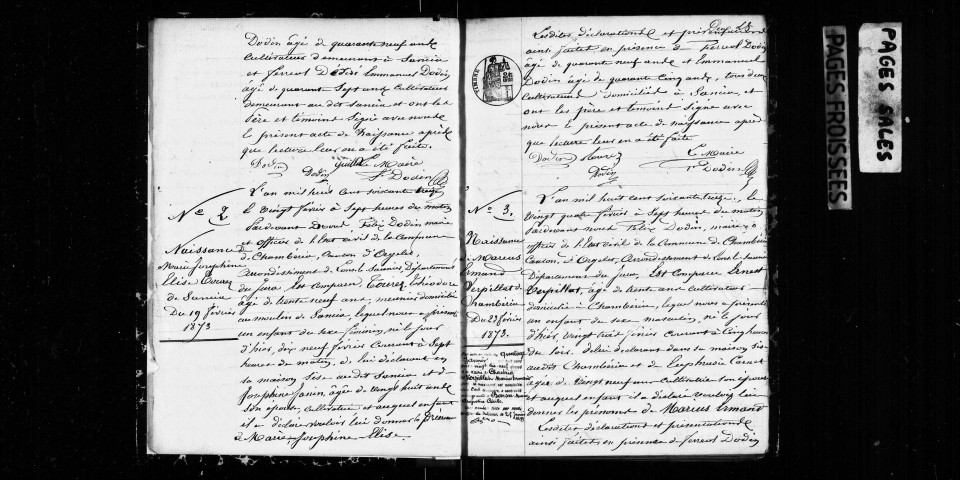 Dodin âgé de quarante neuf ans
Cultivateur demeurant à Sancia
et Ferreol Désiré Emmanuel Dodin
âgé de quarant Sept ans Cultivateur
demeurant au dit Sancia et ont les
Père et témoins Signé avec nous
le présent acte de Naissance après
que lecture leur en a été faite.
Dodin Le Maire
Dodin F. Dodin
No 2
Naissance de
Marie Josephine
Elise Tourez
de Sancia
Du 19 février
1873
L'an mil huit cent soixante treize
le vingt février à Sept heures du matin
Pardevant Nous Felix Dodin maire
et officier de l'Etat civil de la Commune
de Chambéria, Canton d'Orgelet,
Arrondissement de Lons-le-Saunier, Département
du Jura Est Comparu, Tourez Théodore
âgé de trente neuf ans, meunier domicilié
au moulin de Sancia, lequel nous a présenté
un enfant du sexe féminin, né le jour
d'hier, dix neuf février courant à Sept
heures du matin, de lui déclarant en
sa maison sise au dit Sancia et de
Josephine Janin, âgée de vingt huit ans
son épouse, Cultivatrice et auquel enfant
il a déclaré vouloir lui donner les prénoms
de Marie Josephine Elise.
Lesdites déclarations et présentations
ainsi faites en présence de Ferreol Dodin
âgé de quarante neuf ans et Emmanuel
Dodin âgé de quarante cinq ans, tous deux
Cultivateurs domiciliés à Sancia, et
ont les père et témoins signé avec
nous le présent acte de naissance après
que lecture leur en a été faite
Dodin Le Maire
Dodin F. Dodin
No 3.
Naissance
de Marius
Armand
Verpillat de
Chambéria
Du 23 février
1873.
L'an mil huit cent soixante treize, le
vingt quatre février à Sept heures du matin
Pardevant nous Felix Dodin, maire et
officier de l'Etat civil de la Commune de Chambéria
Canton d'Orgelet, Arrondissement de Lons-le-Saunier
Département du Jura, Est Comparu Ernest
Verpillat, âgé de trente ans Cultivateur
domicilié à Chambéria, lequel nous a présenté
un enfant du sexe masculin, né le jour
d'hier, vingt trois février courant à Cinq heures
du soir. de lui déclarant dans sa maison sise
audit Chambéria et de Euphrasie
âgée de vingt neuf ans Cultivatrice son épouse
et auquel enfant il a déclaré vouloir lui
donner les prénoms de Marius Armand
Lesdites déclarations et présentations
ainsi faites en présence de Ferreol Dodin
PAGES SALES
PAGES FROISSEES